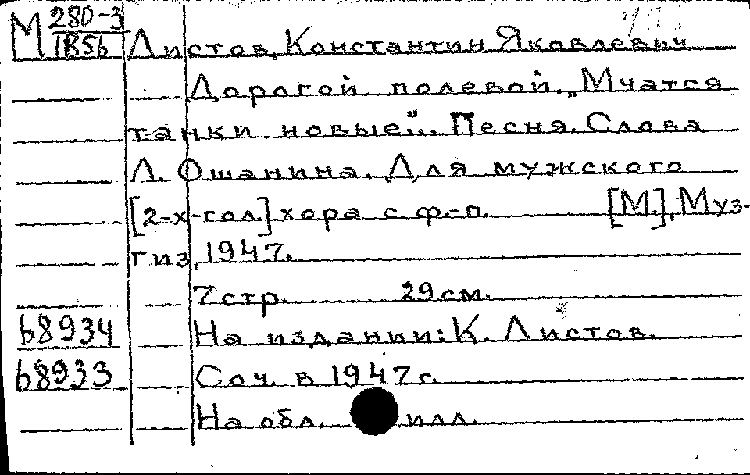 М 280-3
1856 Листов, Константин Яковлевич
Дорогой полевой. „Мчатся
танки новые"... Песня. Слова
Л. Ошанина. Для мужского
[2-х-гол.] хора с ф-п. [М.], Муз-
гиз, 1947.
7 стр. 29 см.
68934 На издании: К. Листов.
68933 Соч. в 1947 г.
На обл. илл.